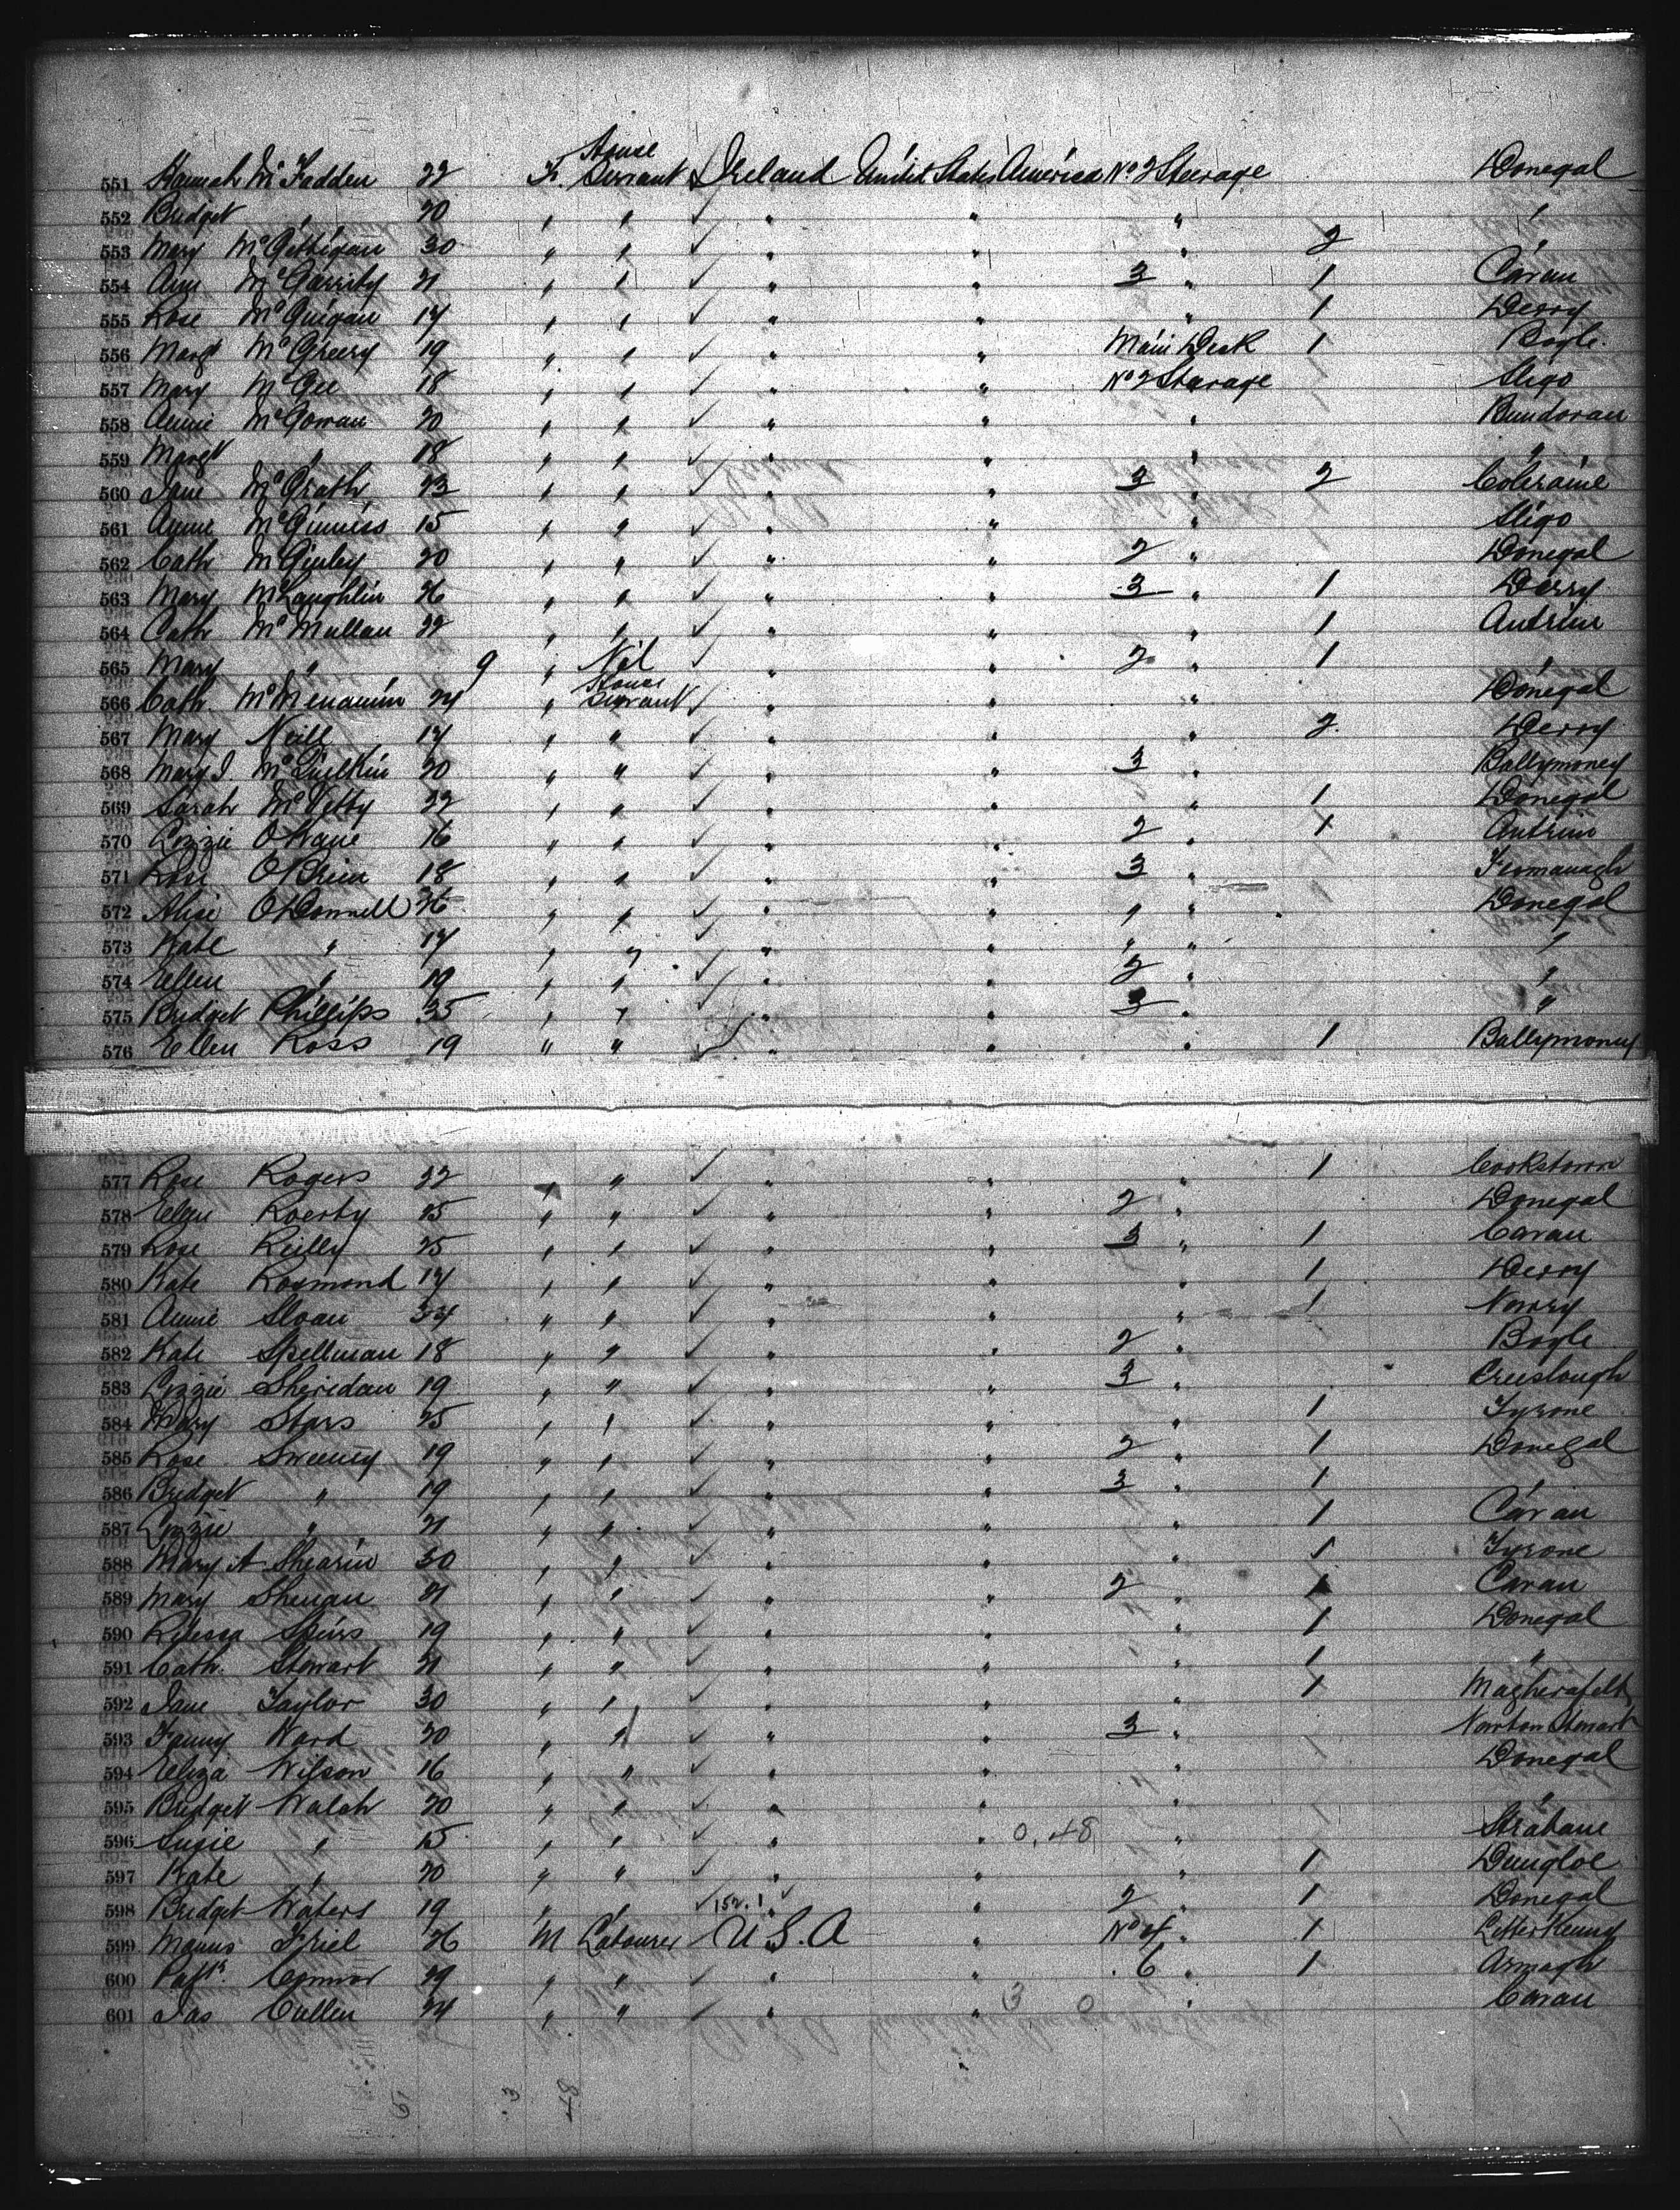 551 Hannah McFadden 22 F. House Servant Ireland United States America No 2 Steerage Donegal
552 Bridget " 20 " " " " " "
553 Mary McGettigan 30 " " " " " 2 "
554 Ann McGarrity 21 " " " " 3 " 1 Cavan
555 Rose McGuigan 17 " " " " " 1 Derry
556 Margt McGreery 19 " " " " Main Deck 1 Boyle.
557 Mary McGee 18 " " " " No 2 Steerage Sligo
558 Annie McGowan 20 " " " " " Bundoran
559 Margt " 18 " " " " " "
560 Jane McGrath 23 " " " " 3 " 2 Coleraine
561 Annie McGinniss 15 " " " " " Sligo
562 Cath McGinley 20 " " " " 2 " Donegal
563 Mary McLaughlin 26 " " " " 3 " 1 Derry
564 Cath McMullan 22 " " " " " 1 Antrim
565 Mary " 9 " Nil " " 2 " 1 "
566 Cath. McMenamin 24 " House Servant " " " Donegal
567 Mary Neill 17 " " " " " 2 Derry
568 Mary J McQuilkin 20 " " " " 3 " Ballymoney
569 Sarah McVetty 22 " " " " " 1 Donegal
570 Lizzie O'Kane 16 " " " " 2 " 1 Antrim
571 Rose O'Brien 18 " " " " 3 " Fermanagh
572 Alice O'Donnell 26 " " " " " " Donegal
573 Kate " 17 " " " " " " "
574 Ellen " 19 " " " " 2 " "
575 Bridget Phillips 35 " " " " 3 " "
576 Ellen Ross 19 " " " " " 1 Ballymoney
577 Rose Rogers 22 " " " " " 1 Cookstown
578 Ellen Roerty 25 " " " " 2 " Donegal
579 Rose Reilly 25 " " " " 3 " 1 Cavan
580 Kate Rosmond 17 " " " " " 1 Derry
581 Annie Sloan 34 " " " " " 1 Newry
582 Kate Spellman 18 " " " " 2 " Boyle
583 Lizzie Sheridan 19 " " " " 3 " Creeslough
584 Mary Stars 25 " " " " " 1 Tyrone
585 Rose Sweeney 19 " " " " 2 " 1 Donegal
586 Bridget " 19 " " " " 3 " 1 "
587 Lizzie " 21 " " " " " 1 Cavan
588 Mary A Shearin 30 " " " " " 1 Tyrone
589 Mary 21 " " " " 2 " 1 Cavan
590 Speirs 19 " " " " " 1 Donegal
591 Cath. Stewart 21 " " " " " 1 "
592 Jane Taylor 30 " " " " " 1 Magherafelt
593 Fanny Ward 20 " " " " 3 " Newton Stewart
594 Eliza Wilson 16 " " " " " Donegal
595 Bridget Walsh 20 " " " " " "
596 Susie " 15 " " " " 0,48 " Strabane
597 Kate " 20 " " " " " 1 Dungloe
598 Bridget Waters 19 " " " " 2 " 1 Donegal
599 Manus Friel 26 M Labourer U.S.A " No 4 " 1 Letterkenny
600 Patk. Connor 29 " " " " 6 " 1 Armagh
601 Jas Cullen 24 " " " " " Cavan